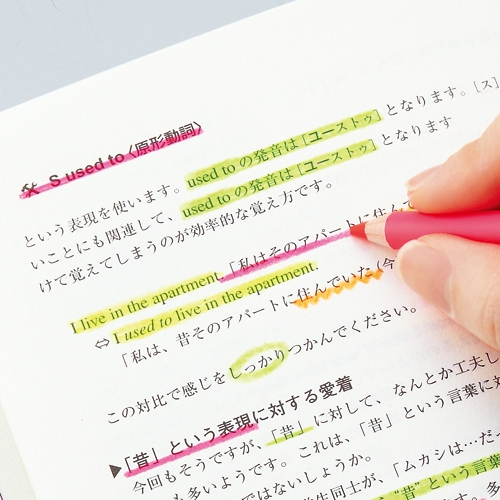 S used to〈原形動詞〉
という表現を使います。used to の発音は［ユーストゥ］となります。［ス］
いことにも関連して、used to の発音は［ユーストゥ］となります
けて覚えてしまうのが効率的な覚え方です。
I live in the apartment.「私はそのアパートに住んで
⇔ I used to live in the apartment.
「私は、昔そのアパートに住んでいた（今
この対比で感じをしっかりつかんでください。
▶「昔」という表現に対する愛着
今回もそうですが、「昔」に対して、なんとか工夫し
も多いようです。これは、「昔」という言葉に対
ではないでしょうか。
生同士が、「ムカシは…だっ
"昔"という言葉